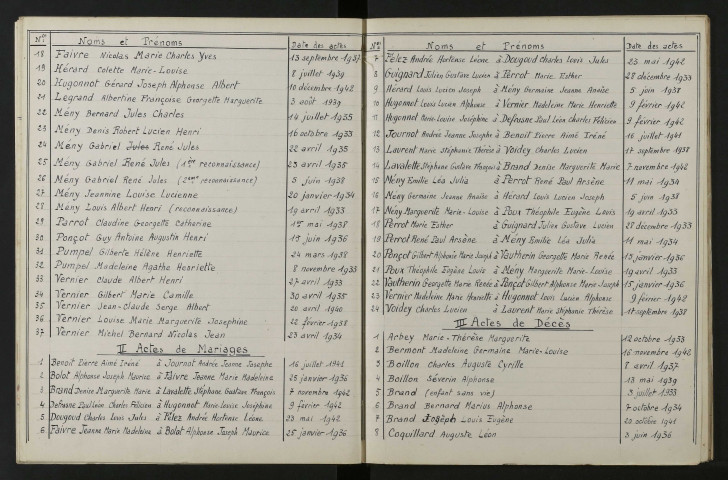 Nos Noms et Prénoms Date des actes
18 Faivre Nicolas Marie Charles Yves 13 septembre 1937
19 Hérard Colette Marie-Louise 8 juillet 1939
20 Hugonnot Gérard Joseph Alphonse Albert 10 décembre 1942
21 Legrand Albertine Françoise Georgette Marguerite 3 août 1939
22 Mény Bernard Jules Charles 14 juillet 1935
23 Mény Denis Robert Lucien Henri 16 octobre 1933
24 Mény Gabriel Jules René Jules 22 avril 1935
25 Mény Gabriel René Jules (1ère reconnaissance) 23 avril 1935
26 Mény Gabriel René Jules (2ème reconnaissance) 5 juin 1938
27 Mény Jeannine Louise Lucienne 20 janvier 1934
28 Mény Louis Albert Henri (reconnaissance) 19 avril 1933
29 Parrot Claudine Georgette Catherine 1er mai 1938
30 Ponçot Guy Antoine Augustin Henri 17 juin 1936
31 Pumpel Gilberte Hélène Henriette 24 mars 1938
32 Pumpel Madeleine Agathe Henriette 8 novembre 1933
33 Vernier Claude Albert Henri 27 avril 1933
34 Vernier Gilbert Marie Camille 30 avril 1935
35 Vernier Jean-Claude Serge Albert 20 avril 1940
36 Vernier Louise Marie Marguerite Josephine 22 février 1938
37 Vernier Michel Bernard Nicolas Jean 23 avril 1934
II Actes de Mariages
1 Benoit Pierre Aimé Irené à Journot Andrée Jeanne Josephe 16 juillet 1941
2 Bolot Alphonse Joseph Maurice à Faivre Jeanne Marie Madeleine 25 janvier 1936
3 Brand Denise Marguerite Marie à Lavalette Stéphane Gustave François 7 novembre 1942
4 Defrasne Paul Léon Charles Félicien à Hugonnot Marie-Louise Joséphine 9 février 1942
5 Dougoud Charles Louis Jules à Pélez Andrée Hortense Léone 23 mai 1942
6 Faivre Jeanne Marie Madeleine à Bolot Alphonse Joseph Maurice 25 janvier 1936
Nos Noms et Prénoms Date des actes
7 Pélez Andrée Hortense Léone à Dougoud Charles Louis Jules 23 mai 1942
8 Guignard Julien Gustave Lucien à Perrot Marie Esther 28 décembre 1933
9 Hérard Louis Lucien Joseph à Mény Germaine Jeanne Anaïse 5 juin 1938
10 Hugonnot Louis Lucien Alphonse à Vernier Madeleine Marie Henriette 9 février 1942
11 Hugonnot Marie-Louise Joséphine à Defrasne Paul Léon Charles Félicien 9 février 1942
12 Journot Andrée Jeanne Josephe à Benoit Pierre Aimé Irené 16 juillet 1941
13 Laurent Marie Stéphanie Thérèse à Voidey Charles Lucien 17 septembre 1938
14 Lavalette Stéphane Gustave François à Brand Denise Marguerite Marie 7 novembre 1942
15 Mény Emilie Léa Julia à Perrot René Paul Arsène 11 mai 1934
16 Mény Germaine Jeanne Anaïse à Hérard Louis Lucien Joseph 5 juin 1938
17 Mény Marguerite Marie-Louise à Poux Théophile Eugène Louis 19 avril 1933
18 Perrot Marie Esther à Guignard Julien Gustave Lucien 28 décembre 1933
19 Perrot René Paul Arsène à Mény Emilie Léa Julia 11 mai 1934
20 Ponçot Gilbert Alphonse Marie Joseph à Vautherin Georgette Marie Renée 15 janvier 1936
21 Poux Théophile Eugène Louis à Mény Marguerite Marie-Louise 19 avril 1933
22 Vautherin Georgette Marie Renée à Ponçot Gilbert Alphonse Marie Joseph 15 janvier 1936
23 Vernier Madeleine Marie Henriette à Hugonnot Louis Lucien Alphonse 9 février 1942
24 Voidey Charles Lucien à Laurent Marie Stéphanie Thérèse 17 septembre 1938
III Actes de Décès
1 Arbey Marie-Thérèse Marguerite 12 octobre 1933
2 Bermont Madeleine Germaine Marie-Louise 16 novembre 1942
3 Boillon Charles Auguste Cyrille 8 avril 1937
4 Boillon Séverin Alphonse 13 mai 1939
5 Brand (enfant sans vie) 3 juillet 1933
6 Brand Bernard Marius Alphonse 7 octobre 1934
7 Brand Joseph Louis Eugène 20 octobre 1941
8 Coquillard Auguste Léon 3 juin 1936